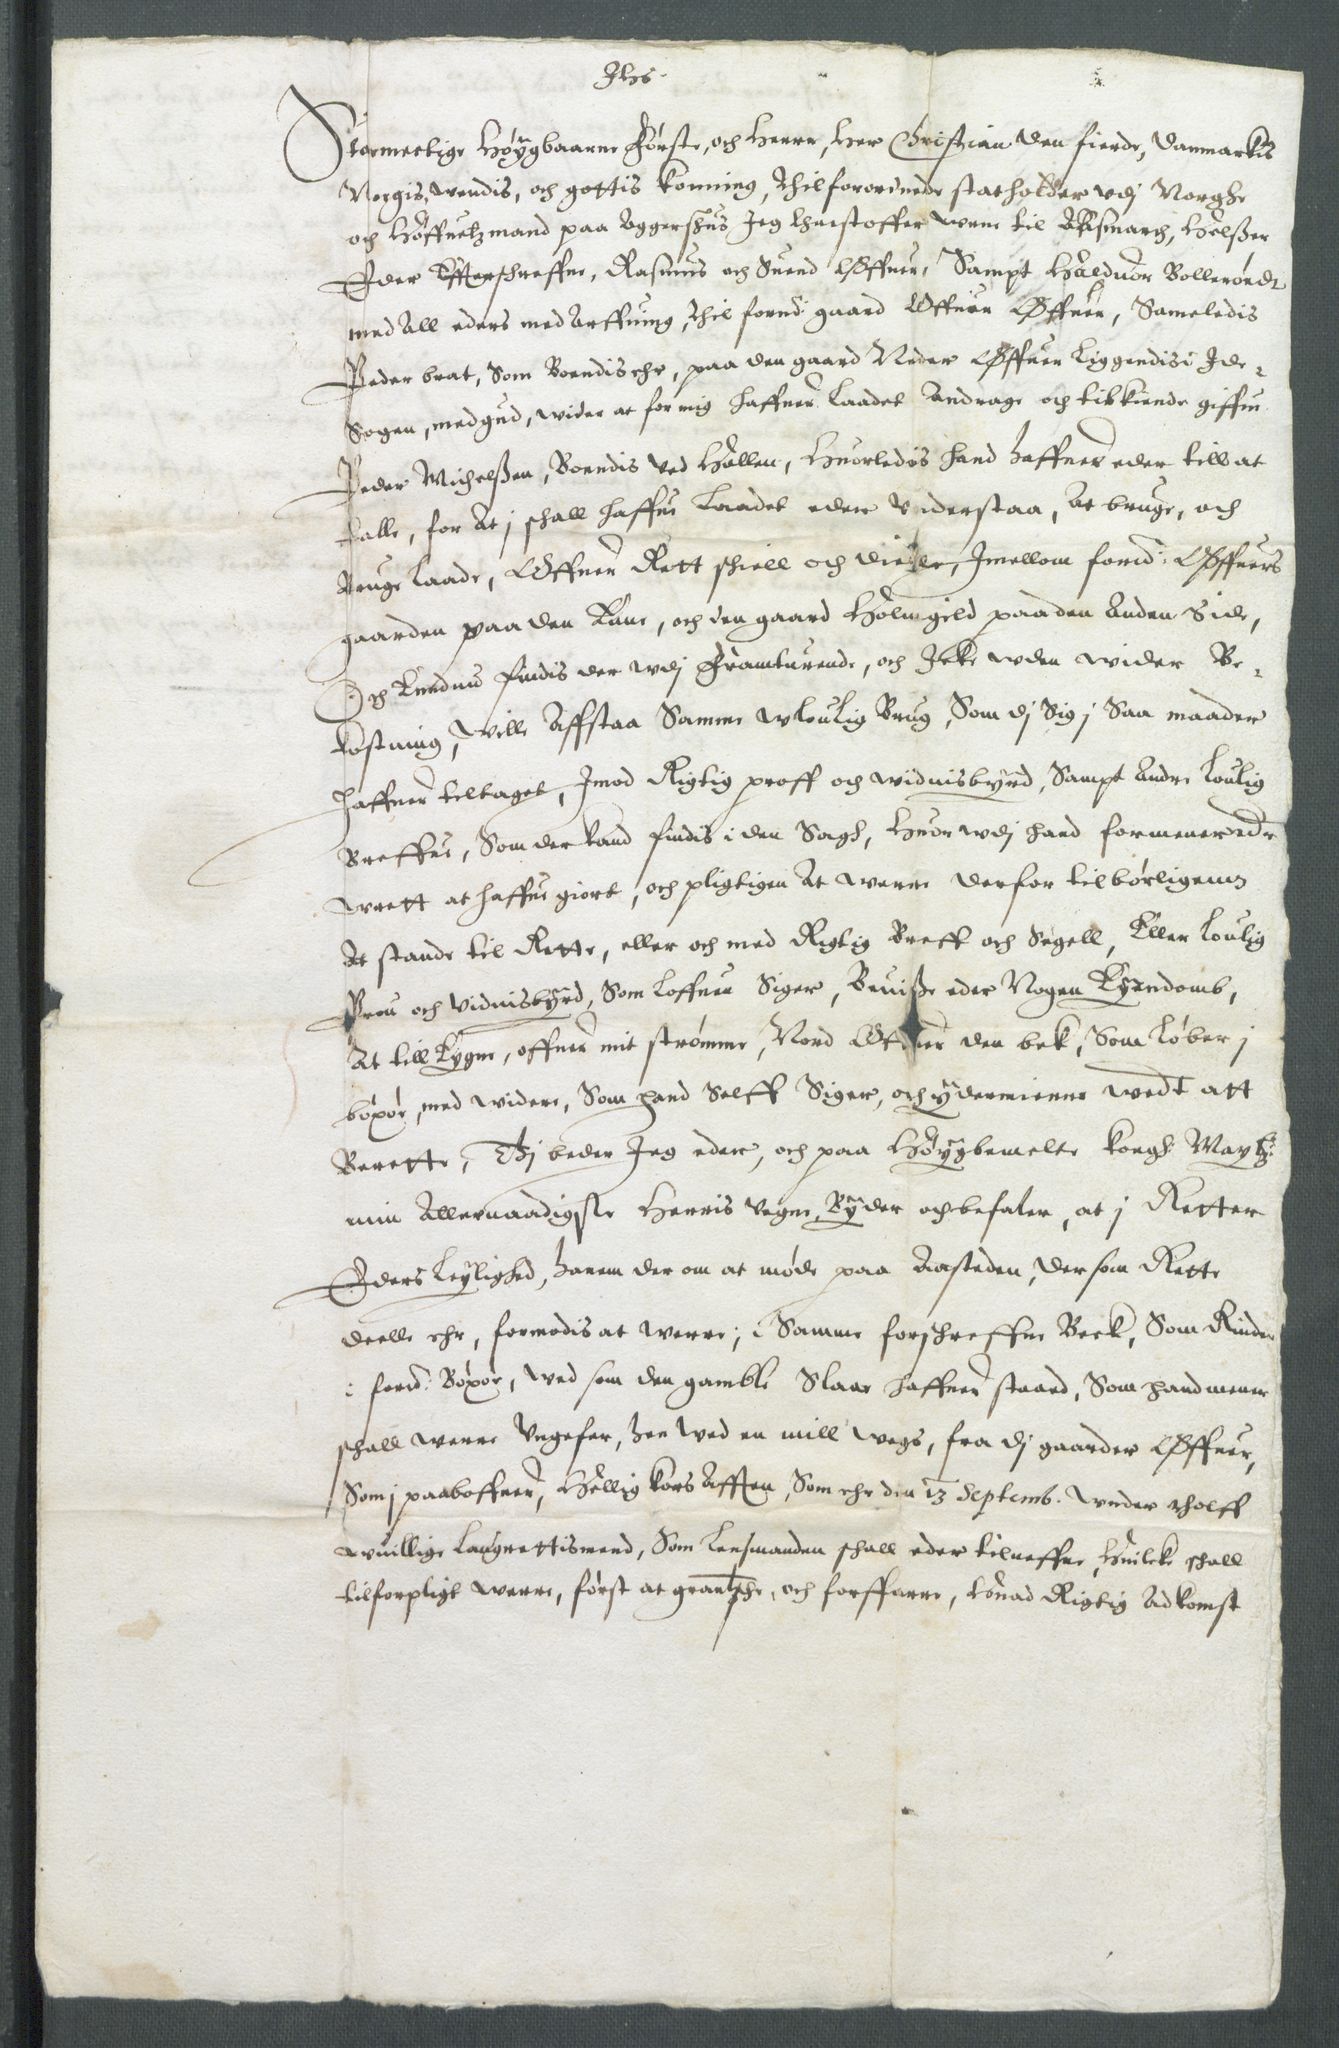 Jhs
Stormectige Høÿgbaarne Første, och Herre, Her Christian den fierde, Danmarkis
Norgis, wendis, och gottis konning, thilforordnede statholder vdj Norghe
och Høffuetzmand paa Aggershus Jeg Christoffer wrne til Aasmarch, Helßer
Eder Effterschreffne, Rasmus och Suend Øffner, Sampt Haldvor Bollerøndt
med All eders med Arffuing, thil fornd: gaard Øffuer Øffner, Sameledis
Peder brat, Som Boendis ehr, paa den gaard Neder Øffner liggendis i Ide-
Sogen, med gud, wider at for mig haffuer laadet Andrage och tilkiende giffue
Peder Michelßen, Boendis ved Hallen, Huorledis hand haffuer eder till at
talle, for At j schall haffue laadet eder vnderstaa, At bruge, och
Bruge laade, Offuer Rett skiell och dielle, Imellom fornd: Øffners
gaarden paa den Eene, och den gaard Holmgild paa den Anden Side,
Och Endnu findis der wdj Framturende, och Icke wden wider Be-
kostning, Wille Affstaa Samme wlouLig Brug, Som dj Sig j Saa maader
haffuer tiltaget, Imod Rigtig proff och widnisbyrd, Sampt Andre louLig
Breffue, Som der kand findis i den Sagh, Huor wdj hand formener eder
wrett at haffue giort, och pligtigen At were derfor tilbørligens
At stande til Rette, eller och med Rigtig Breff och Segell, Eller louLig
Prou och Vidnisbyrd, Som Loffuen Siger, Beuiße eder Nogen Eyendomb,
At till Eygne, offuer mit strømme, Nord Offuer den bek, Som løber j
bøxør, med widere, Som hand Self Siger, och ÿdermiere wedt att
Berette, Thj beder Jeg eder, och paa Høÿgbemelte kongh: Maytz:
min Allernaadigste Herris Vegne, Bÿder och befaler, at j Retter
Eders Leyligһed, hanem der om at møde paa Aasteden, der som Rette
deelle ehr, formodis at were, i Samme forschreffne Beck, Som Rinder
i fornd: Bøxør, wed som den gamble Slaae haffuer staaed, Som hand mener
schall were Vngefer, hen wed en mill wegs, fra dj gaarder Øffner,
Som j paaboffuer, Hellig kors Afften, Som ehr den 13 Septemb. wnder tholff
wuillige Laugrettismend, Som Lensmanden schall eder tilneffne, Huilcke schall
tilforpligt were, først at grantsche, och forffarre, huad Rigtig Adkomst